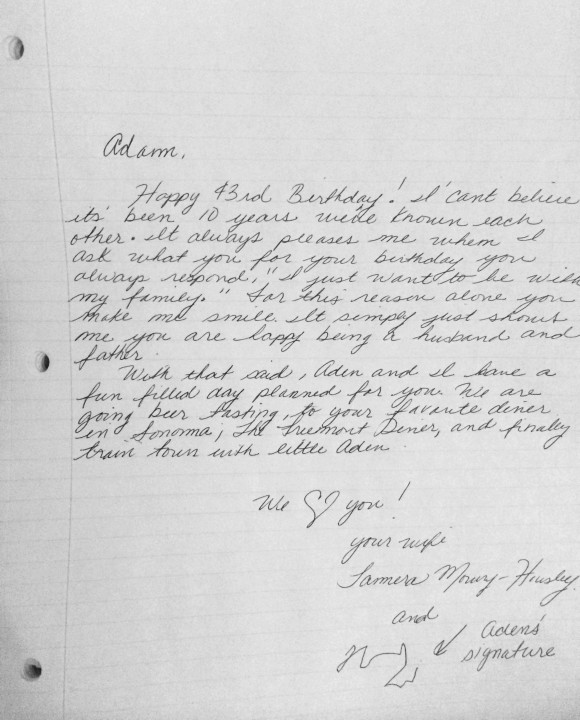 Adam,
Happy 43rd Birthday! I can't believe
its been 10 years we've known each
other. It always pleases me when I
ask what you for your birthday you
always respond, "I just want to be with
my family." For this reason alone you
make me smile. It simply just shows
me you are happy being a husband and
father.
With that said, Aden and I have a
fun filled day planned for you. We are
going beer tasting, to your favorite diner
in Sonoma; The Fremont Diner, and finally
train town with little Aden.
We ♡ you!
your wife
Tamera Mowry-Housley
and
Aden's
signature